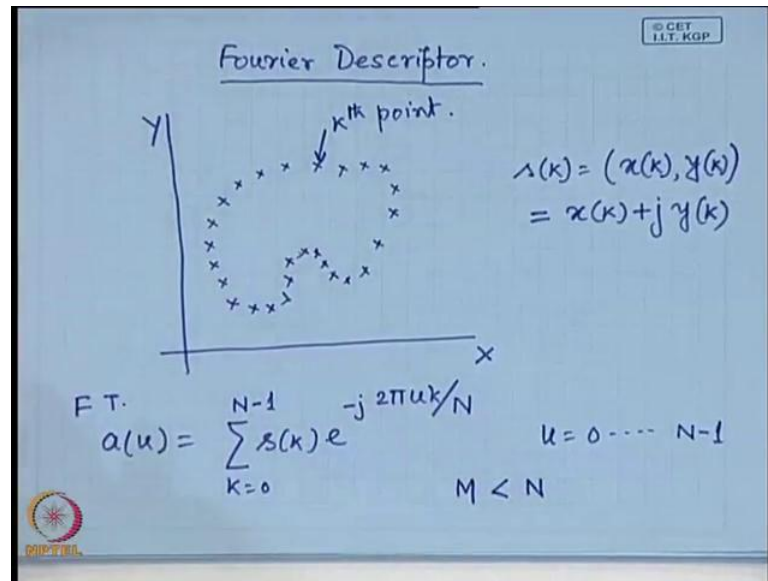 © CET
I.I.T. KGP
Fourier Descriptor.
Y
Kth point.
s(k) = (x(k), y(k))
= x(k) + j y(k)
X
F T.
a(u) = N-1 ∑ k=0 s(k) e^-j 2πuk/N
u = 0 ---- N-1
M < N
NPTEL